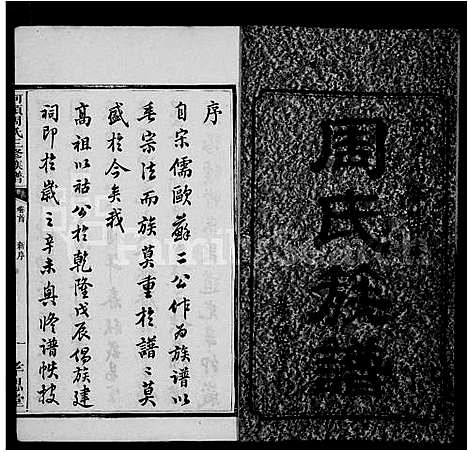 周氏族譜
序
自宋儒歐蘇二公作為族譜以
垂宗法而族莫重於譜譜莫
盛於今矣我
高祖以祜公於乾隆戊辰倡族建
祠即於歲之辛未與修譜帙披
周氏三修族譜
卷首 新序
一 孝思堂
FamilySearch